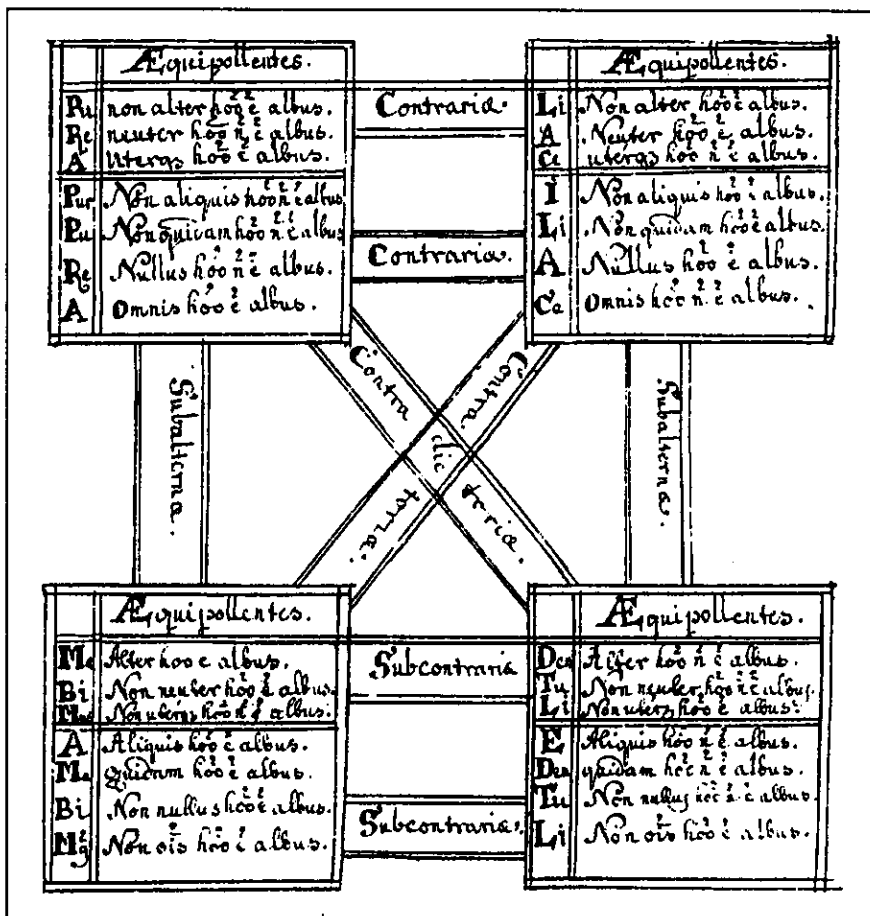 Æquipollentes.
Pu non alter hoo ẽ albus.
Re neuter hoo n̄ ẽ albus.
A Uterqs hoo ẽ albus.
Pur Non aliquis hoo n̄ ẽ albus
Pu Non quidam hoo n̄ ẽ albus
Re Nullus hoo n̄ ẽ albus.
A Omnis hoo ẽ albus.
Contrariæ.
Contrariæ.
Æquipollentes.
Li Non alter hoo ẽ albus.
A Neuter hoo ẽ albus.
Ce uterqs hoo n̄ ẽ albus.
I Non aliquis hoo ẽ albus.
Li Non quidam hoo ẽ albus.
A Nullus hoo ẽ albus.
Ce Omnis hoo n̄ ẽ albus.
Subalternæ.
Contra dic toriæ.
Contra toriæ.
Subalternæ.
Æquipollentes.
Me Alter hoo e albus.
Bi Non neuter hoo ẽ albus.
Non uterqs hoo n̄ ẽ albus.
A Aliquis hoo ẽ albus.
Me quidam hoo ẽ albus.
Bi Non nullus hoo ẽ albus.
Non oīs hoo ẽ albus.
Subcontraria
Subcontrariæ.
Æquipollentes.
Den Alter hoo n̄ ẽ albus.
Tu Non neuter hoo n̄ ẽ albus.
Li Non uterqs hoo ẽ albus.
E Aliquis hoo n̄ ẽ albus.
Den quidam hoo n̄ ẽ albus.
Tu Non nullus hoo n̄ ẽ albus.
Li Non oīs hoo ẽ albus.